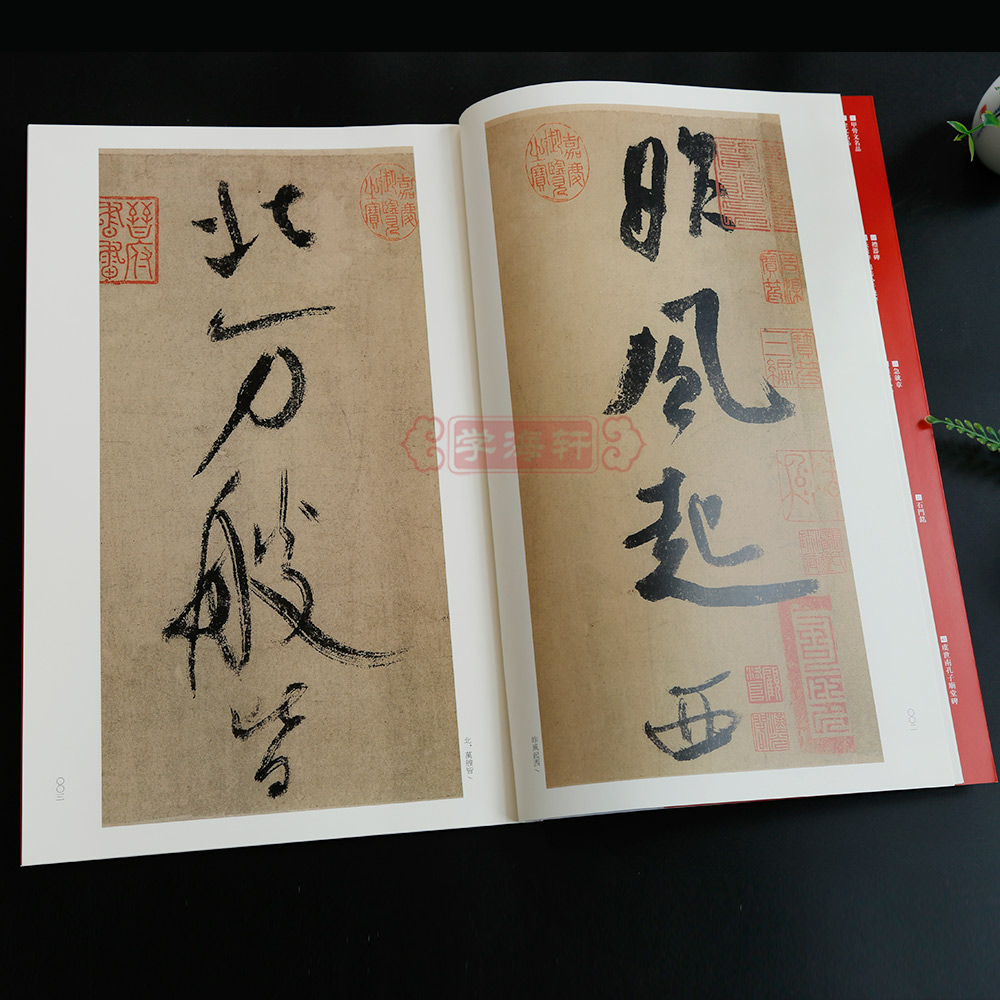 昨风起西
昨風起西/
〇〇二
嘉慶御覽之寶
北万般皆
北,萬般皆/
〇〇三
嘉慶御覽之寶
晉府書畫
学海轩
甲骨文名品
禮器碑
急就章
石門銘
虞世南孔子廟堂碑